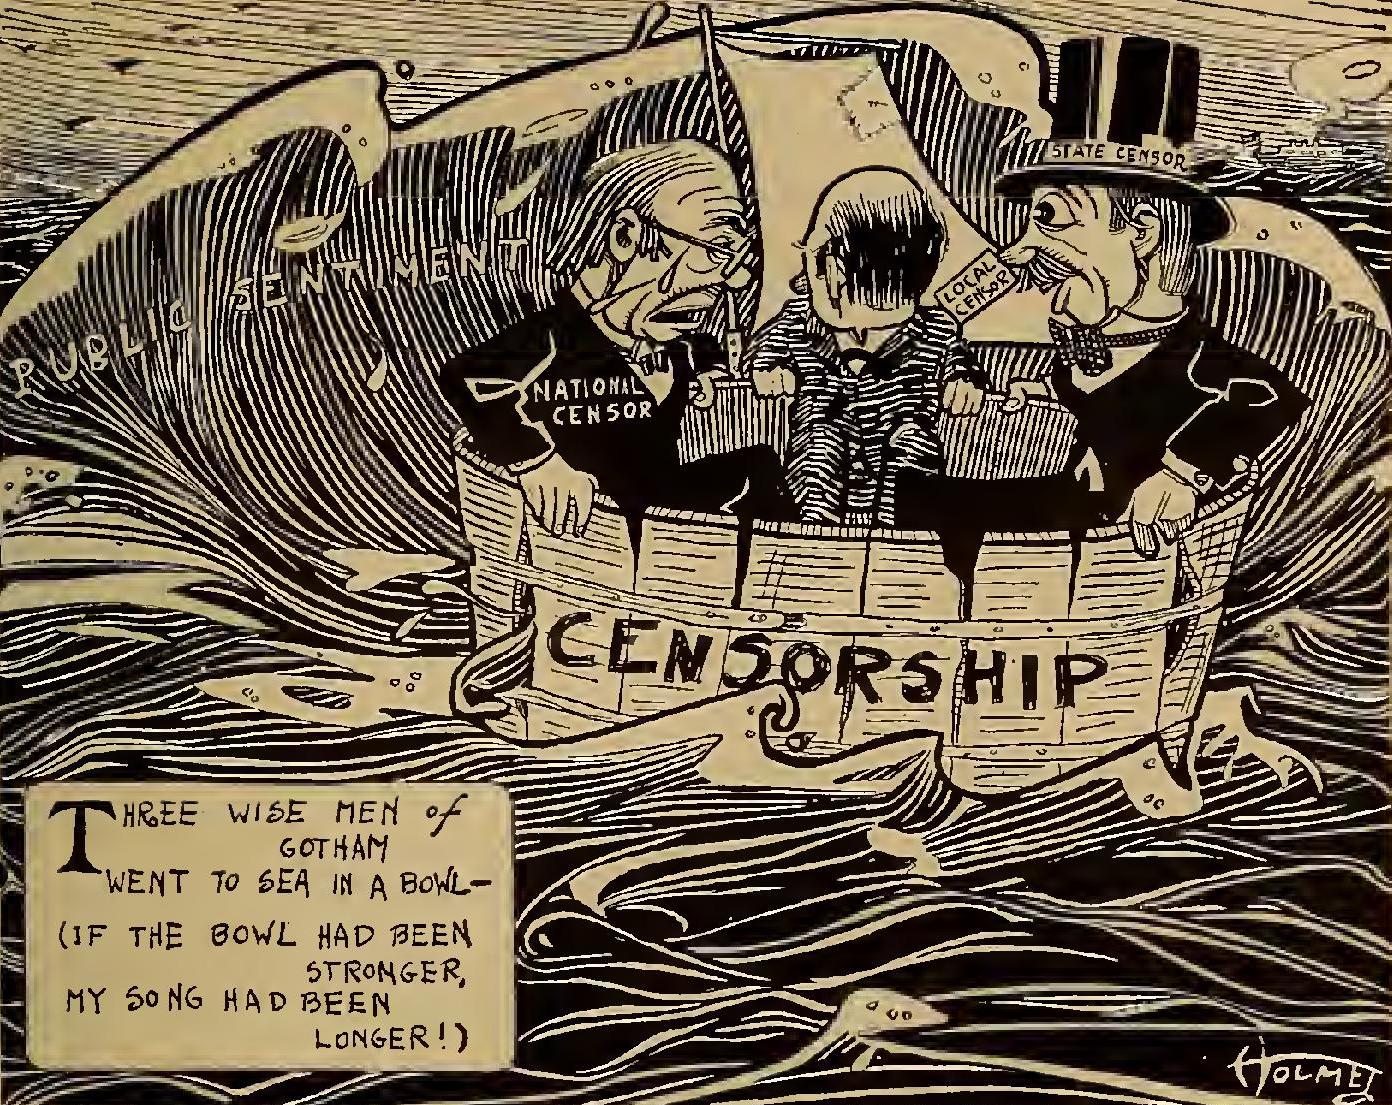 PUBLIC SENTIMENT
STATE CENSOR
LOCAL
CENSOR
NATIONAL
CENSOR
CENSORSHIP
THREE WISE MEN of
GOTHAM
WENT TO SEA IN A BOWL—
(IF THE BOWL HAD BEEN
STRONGER,
MY SONG HAD BEEN
LONGER!)
HOLMES